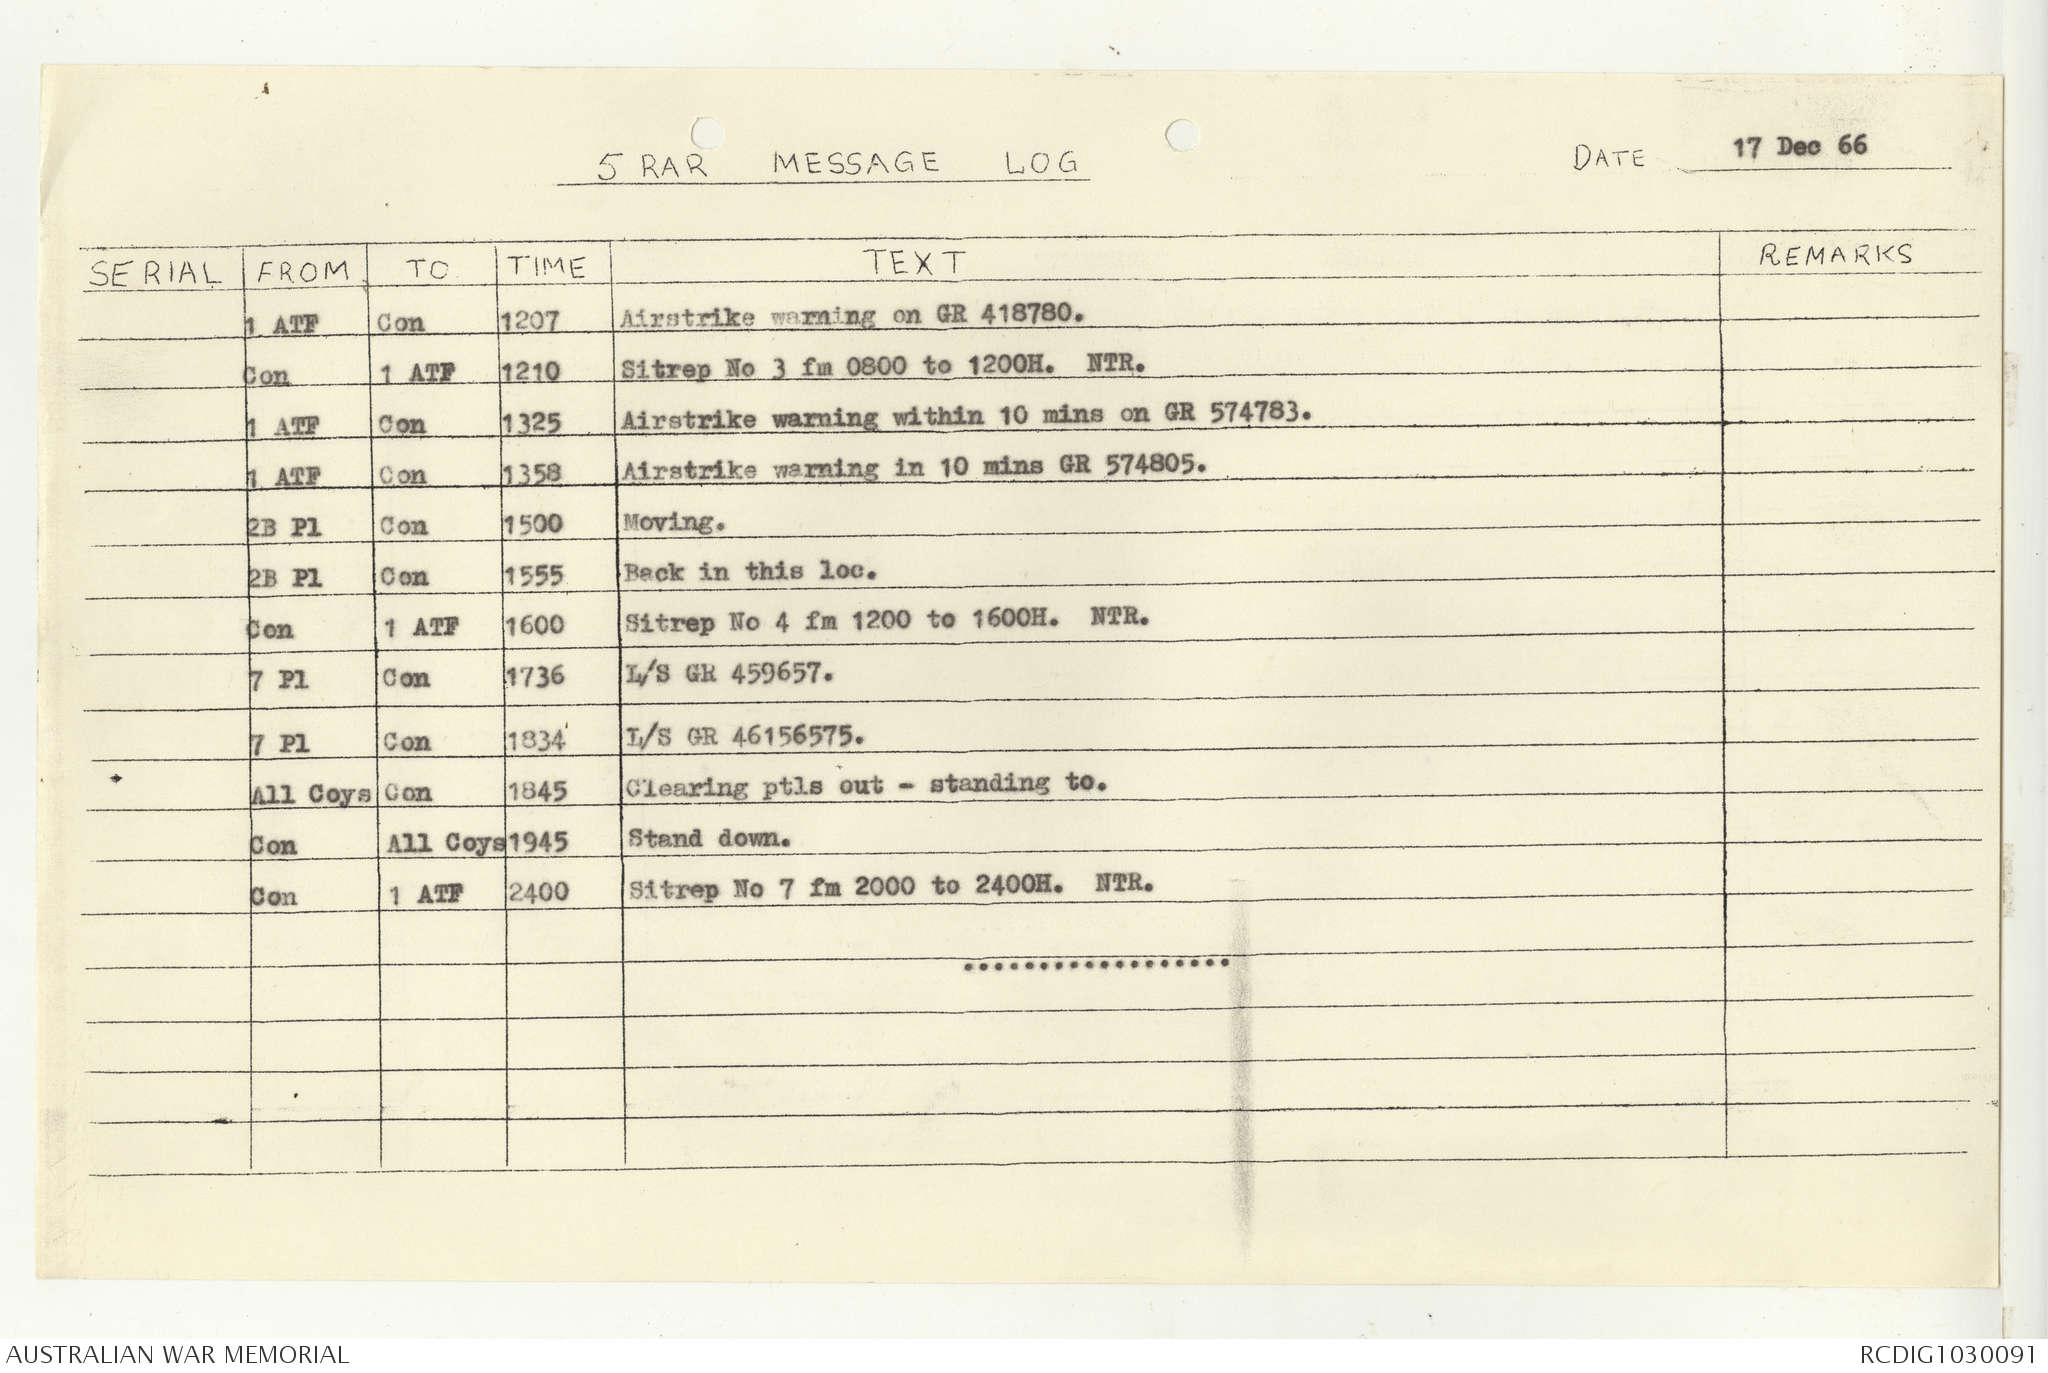 5 RAR MESSAGE LOG
DATE 17 Dec 66
SERIAL FROM TO TIME TEXT REMARKS
1 ATF Con 1207 Airstrike warning on GR 418780.
Con 1 ATF 1210 Sitrep No 3 fm 0800 to 1200H. NTR.
1 ATF Con 1325 Airstrike warning within 10 mins on GR 574783.
1 ATF Con 1358 Airstrike warning in 10 mins GR 574805.
2B Pl Con 1500 Moving.
2B Pl Con 1555 Back in this loc.
Con 1 ATF 1600 Sitrep No 4 fm 1200 to 1600H. NTR.
7 Pl Con 1736 L/S GR 459657.
7 Pl Con 1834 L/S GR 46156575.
All Coys Con 1845 Clearing ptls out - standing to.
Con All Coys 1945 Stand down.
Con 1 ATF 2400 Sitrep No 7 fm 2000 to 2400H. NTR.
..................
AUSTRALIAN WAR MEMORIAL
RCDIG1030091